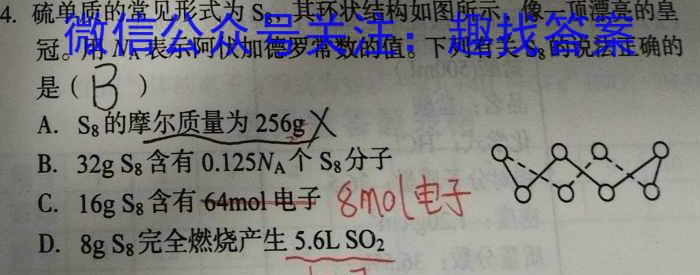 4. 硫单质的常见形式为 S₈，其环状结构如图所示，像一顶漂亮的皇
微信公众号关注：趣找答案
冠。用 Nₐ 表示阿伏加德罗常数的值。下列有关 S₈ 的说法正确的
是（ B ）
A. S₈ 的摩尔质量为 256g X
B. 32g S₈ 含有 0.125Nₐ 个 S₈ 分子
C. 16g S₈ 含有 64mol 电子 8mol电子
D. 8g S₈ 完全燃烧产生 5.6L SO₂